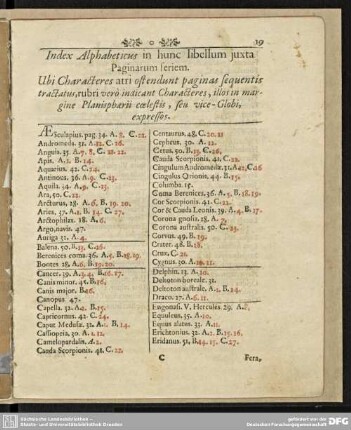 19
Index Alphabeticus in hunc libellum juxta
Paginarum seriem.
Ubi Characteres atri ostendunt paginas sequentis
tractatus, rubri verò indicant Characteres, illos in mar-
gine Planisphærii cœlestis, seu vice-Globi,
expressos.
Æsculapius. pag. 34. A. 8. C. 12.
Andromeda. 31. A. 12. C. 26.
Anguis. 35.
Apis. A. 2. B. 14.
Aquarius. 42. C. 24.
Antinous. 36. A. 9. C. 23.
Aquila. 34. A. 9. C. 15.
Ara, 50. C. 12.
Arcturus, 28. A. 6. B. 19. 20.
Aries, 37. A. 1. B. 14. C. 27.
Arctophilex. 28. A. 6.
Argo, navis. 47.
Auriga 31. A. 4.
Balena. 50. B. 13. C. 26.
Berenices coma. 36. A. 5. B. 18. 19.
Bootes 28. A. 6. B. 19. 20.
Cancer. 39. A. 3. 4. B. 16. 17.
Canis minor. 45. B. 16.
Canis major. B. 16.
Canopus 47.
Capella. 32. A. 2. B. 15.
Capricornus. 42. C. 24.
Caput Medusæ. 32. A. 1. B. 14.
Cassiopeia. 30. A. 1. 12.
Camelopardalis. A. 2.
Cauda Scorpionis. 48. C. 22.
Centaurus. 48. C. 20. 21
Cepheus. 30. A. 12.
Cetus. 50. B. 13. C. 26.
Cauda Scorpionis. 41. C. 22.
Cingulum Andromedæ. 31. A. 12. C. 26
Cingulus Orionis. 44. B. 15.
Columba. 15.
Coma Berenices. 36. A. 5. B. 18. 19.
Cor Scorpionis. 41. C. 22.
Cor & Cauda Leonis. 39. A. 4. B. 17.
Corona gnosia. 28. A. 7.
Corona australis. 50. C. 23.
Corvus. 49. B. 19.
Crater. 48. B. 18.
Crux. C. 21.
Cygnus. 30. A. 10. 11.
Delphin. 35. A. 10.
Deltoton boreale. 32.
Deltoton australe. A. 1. B. 14.
Draco. 27. A. 6. 11.
Engonasi. V. Hercules. 29. A. 8.
Equuleus. 35. A. 10.
Equus alatus. 33. A. 11.
Erichtonius. 32. A. 2. B. 15. 16.
Eridanus. 51. B. 14. 15. C. 27.
C Fera,